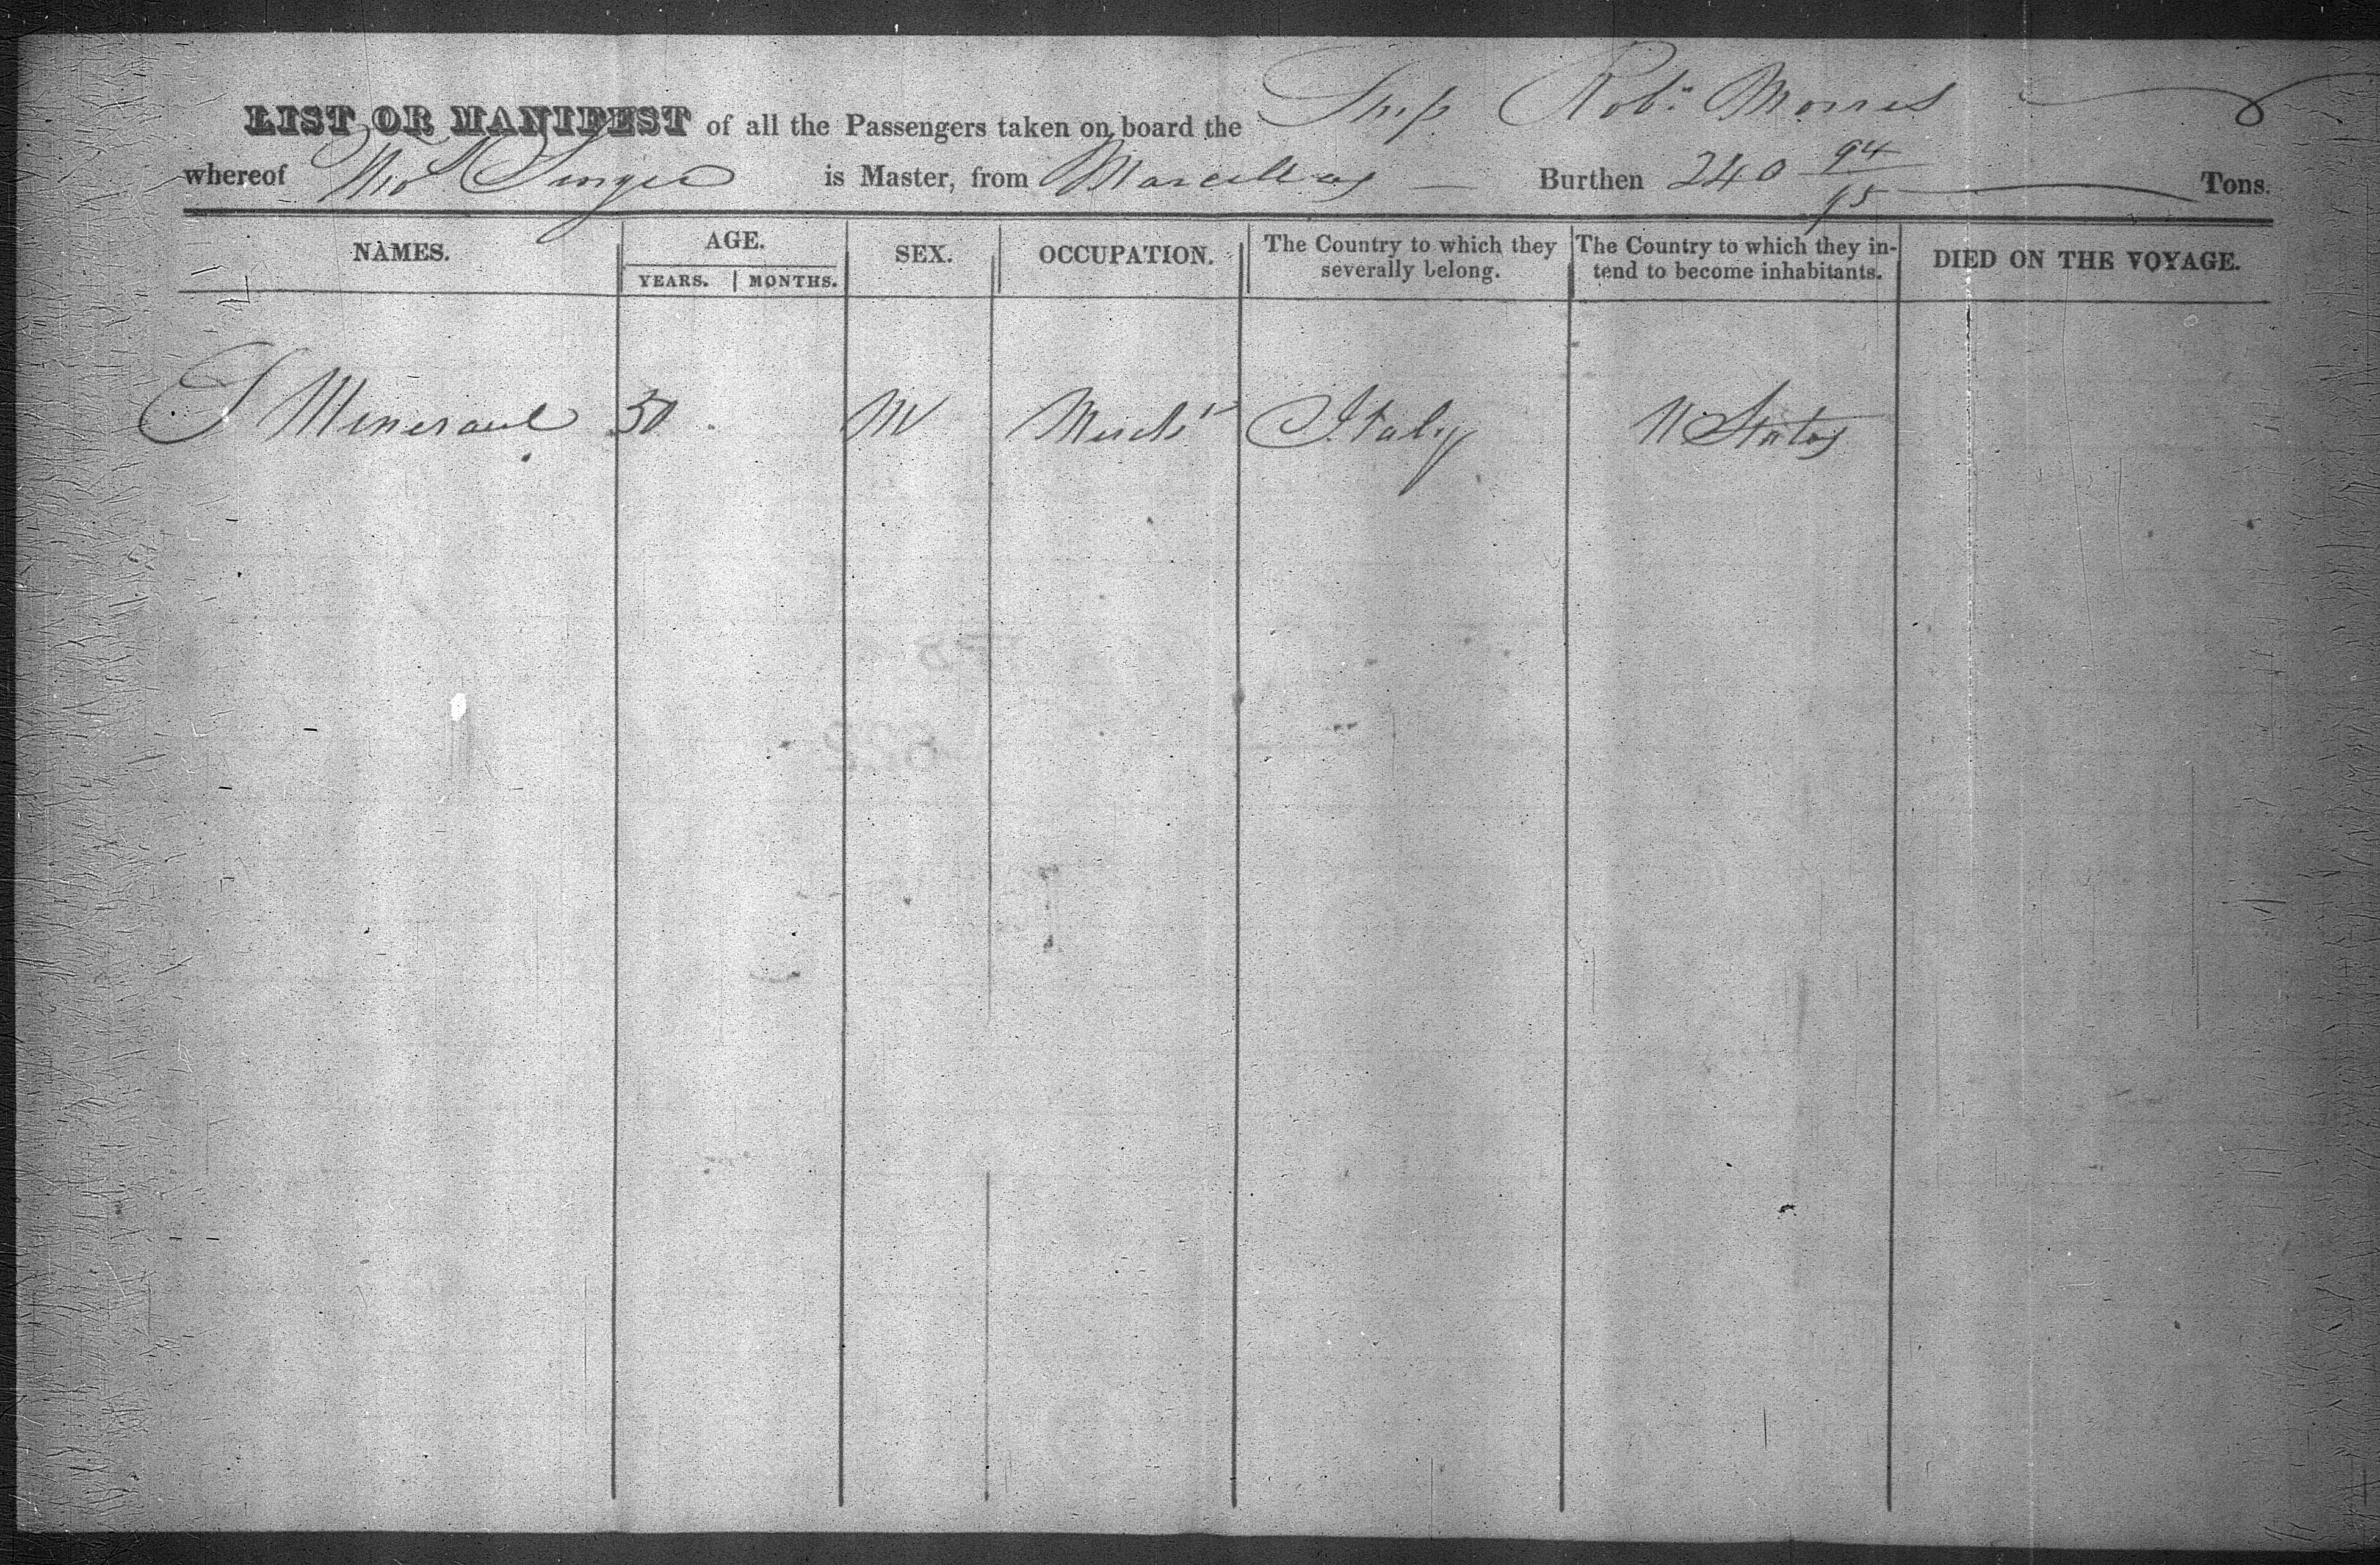 LIST OR MANIFEST of all the Passengers taken on board the Ship Robt Morris
whereof Singer is Master, from Marcellas Burthen 240 94/95 Tons.
NAMES. AGE. SEX. OCCUPATION. The Country to which they severally belong. The Country to which they intend to become inhabitants. DIED ON THE VOYAGE.
YEARS. MONTHS.
30 M Mercht Italy U States